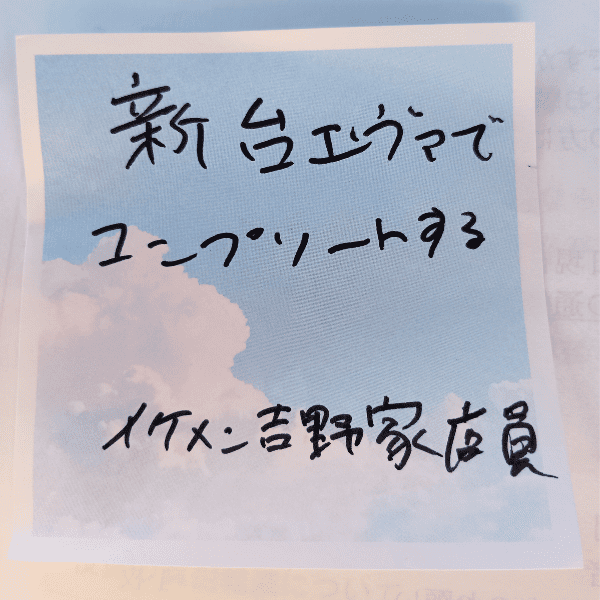 新台エヴァで
コンプリートする
イケメン吉野家店員